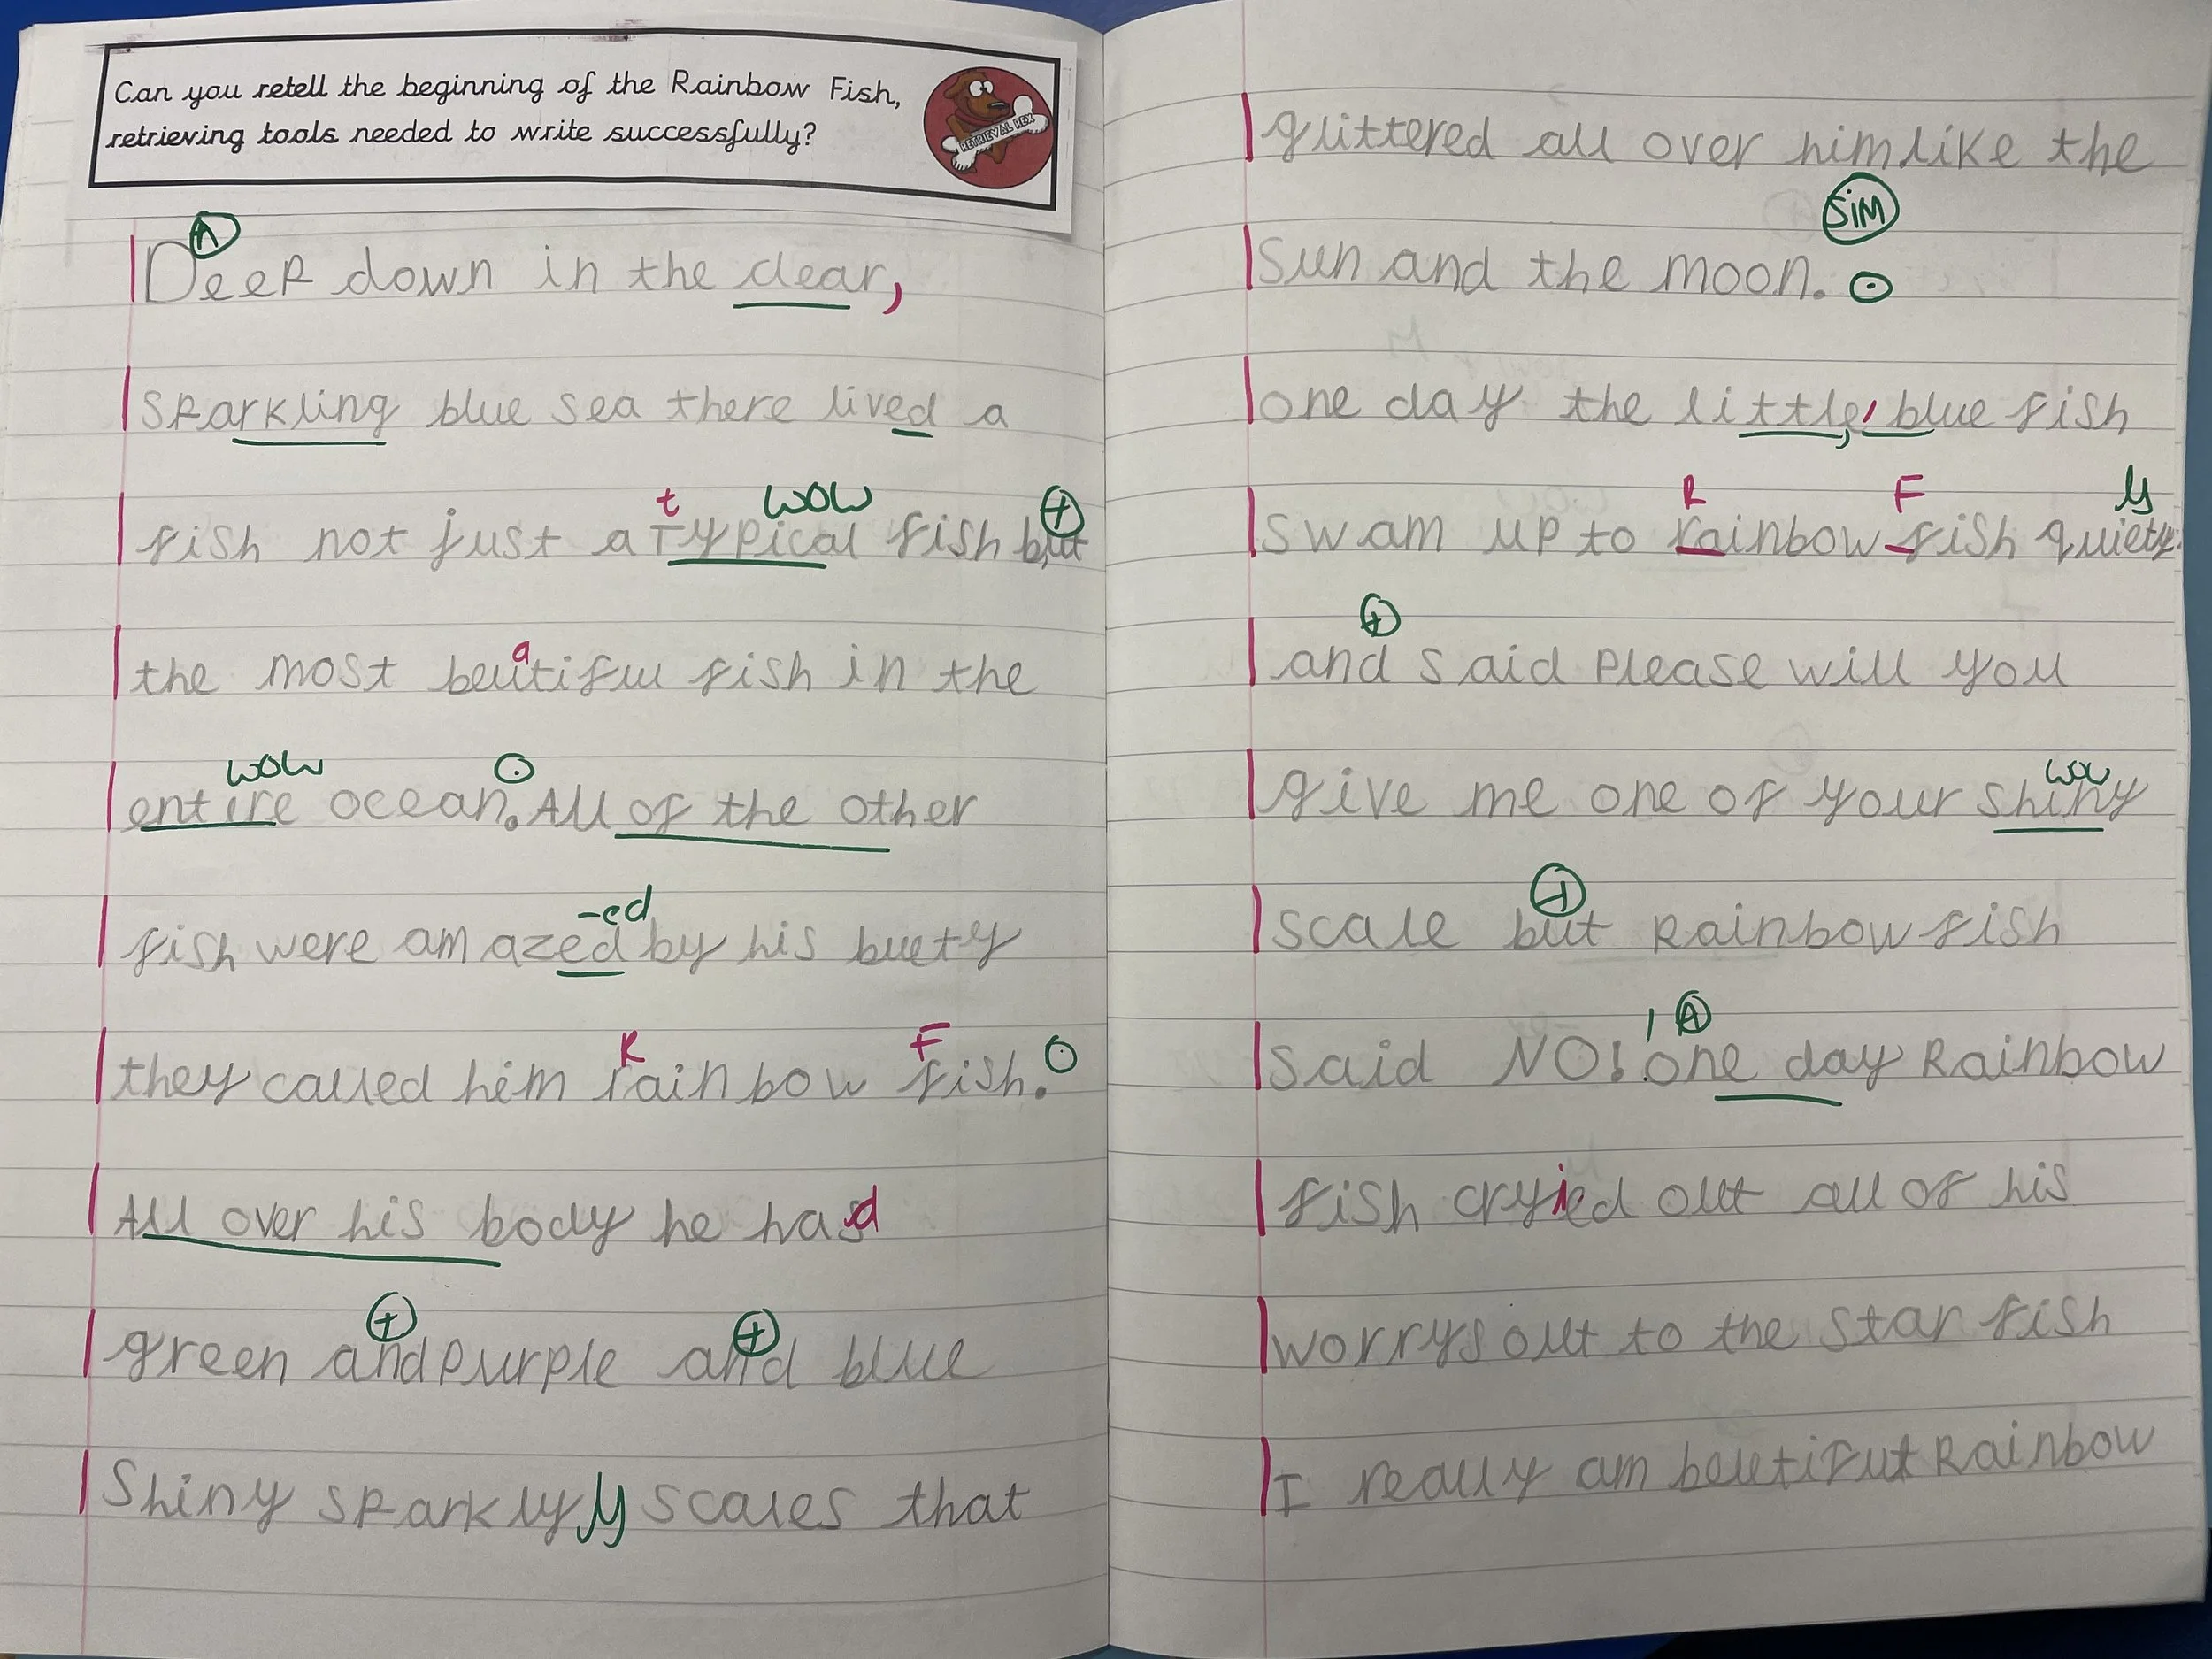 Can you retell the beginning of the Rainbow Fish,
retrieving tools needed to write successfully?
RETRIEVAL REX
A
Deep down in the clear,
sparkling blue sea there lived a
t wow +
fish not just a Typical fish but
a
the most beutiful fish in the
wow
entire ocean. All of the other
-ed
fish were amazed by his buety
R F
they called him rainbow fish.
All over his body he had
+ +
green and purple and blue
Shiny sparkly ly scales that
glittered all over him like the
SIM
Sun and the moon.
one day the little, blue fish
R F ly
swam up to rainbow fish quietly
+
and said Please will you
wow
give me one of your shiny
+
scale but Rainbow fish
A
said NO! one day Rainbow
fish cryied out all of his
worrys out to the star fish
I really am beutifut Rainbow